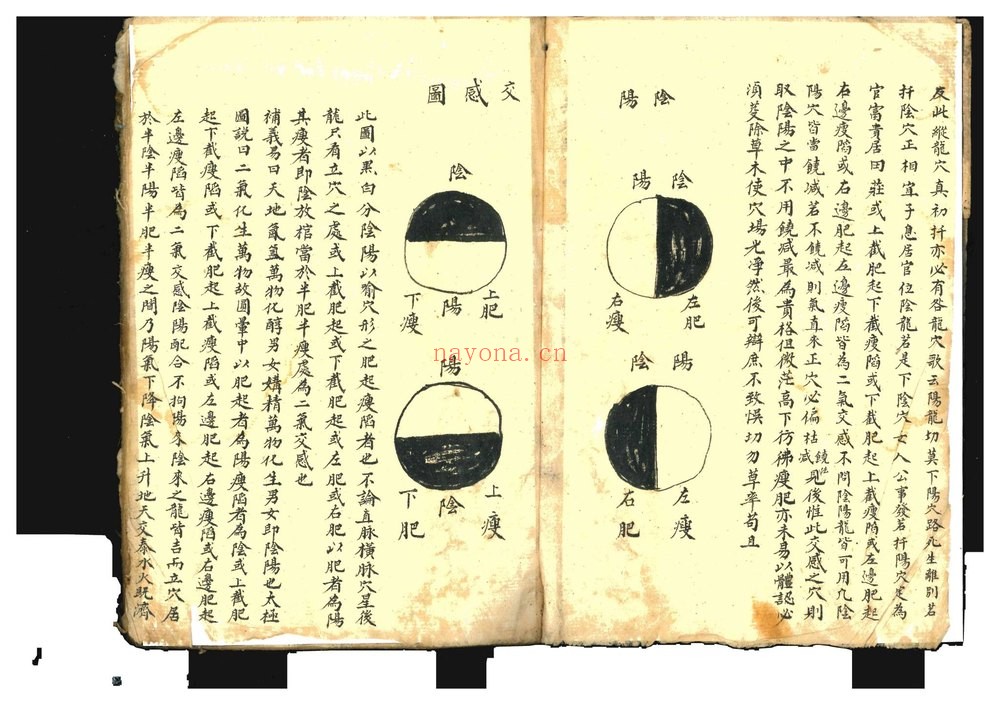 反此縱龍穴真初扦亦必有咎龍穴歌云陽龍切莫下陽穴路死生離別若
扦陰穴正相宜子息居官位陰龍若是下陰穴女人公事發若扦陽穴定為
官富貴居田莊或上截肥起下截瘦陷或下截肥起上截瘦陷或左邊肥起
右邊瘦陷或右邊肥起左邊瘦陷皆為二氣交感不問陰陽龍皆可用凡陰
陽穴皆當饒减若不饒减則氣直來正穴必偏枯饒减見後惟此交感之穴則
取陰陽之中不用饒减最為貴格但微茫高下彷彿瘦肥亦未易以體認必
須芟除草木使穴場光淨然後可辯庶不致悞切勿草率苟且
陰陽
陰陽
左肥
右瘦
陽陰
左瘦
右肥
交感圖
陰
上肥
陽
下瘦
陽
上瘦
陰
下肥
此圖以黑白分陰陽以喻穴形之肥起瘦陷者也不論直脉橫脉穴星後
龍只看立穴之處或上截肥起或下截肥起或左肥或右肥以肥者為陽
其瘦者即陰放棺當於半肥半瘦處為二氣交感也
補義易曰天地氤氳萬物化醇男女媾精萬物化生男女即陰陽也太極
圖說曰二氣化生萬物故圓暈中以肥起者為陽瘦陷者為陰或上截肥
起下截瘦陷或下截肥起上截瘦陷或左邊肥起右邊瘦陷或右邊肥起
左邊瘦陷皆為二氣交感陰陽配合不拘陽來陰來之龍皆吉而立穴居
於半陰半陽半肥半瘦之間乃陽氣下降陰氣上升地天交泰水火既濟
nayona.cn